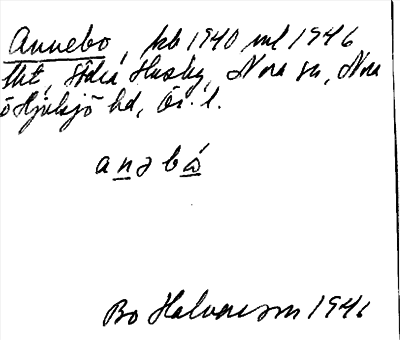 Annebo, kb 1940 ml 1946
tht, Södra Husby, Nora sn, Nora
o Hjulsjö hd, Ör. l.
anəbò
Bo Halvarsson 1946